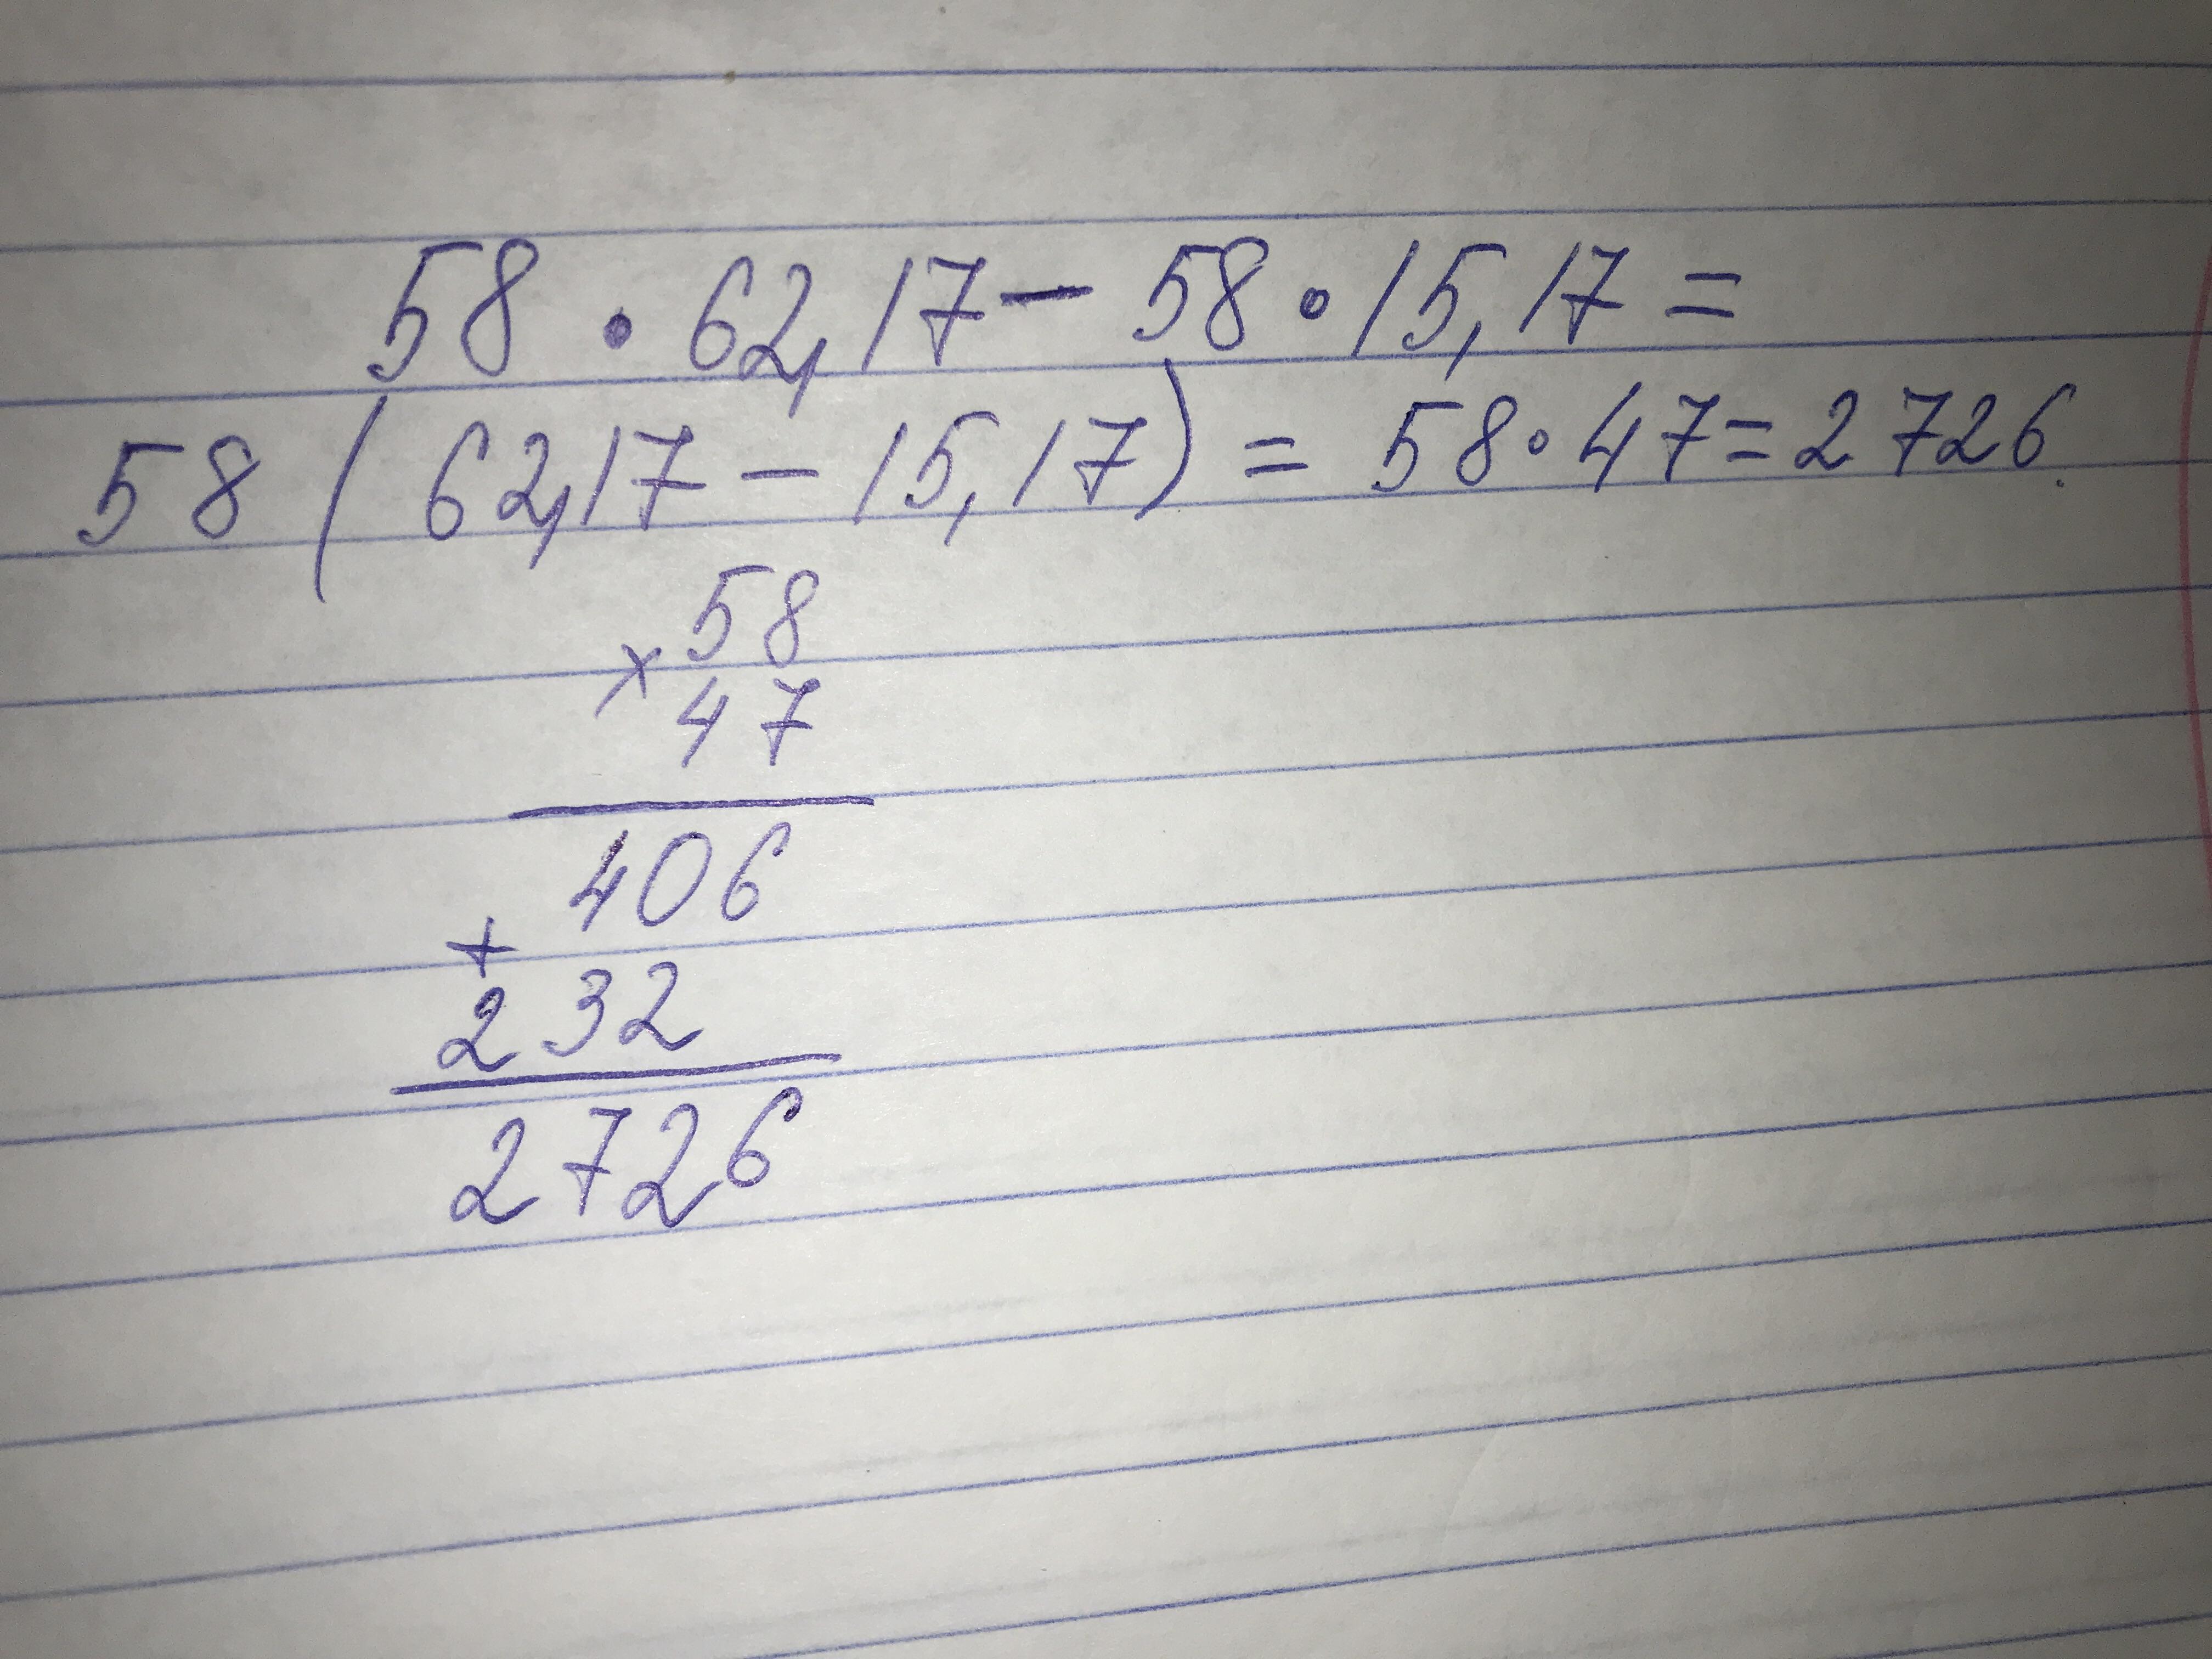 58 • 62,17 - 58 • 15,17 =
58 ( 62,17 - 15,17 ) = 58 • 47 = 2726.
58
×
47
406
+
232
2726